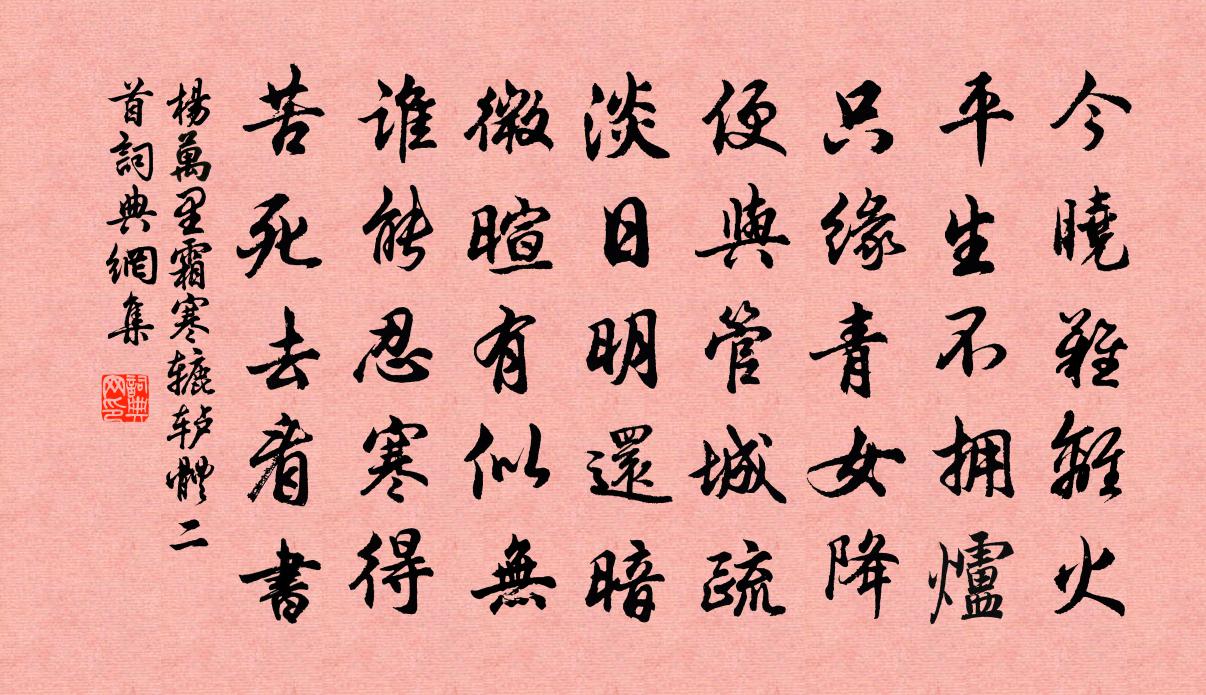 今曉難離火
平生不拥爐
只缘青女降
便與管城疏
淡日明還暗
微暄有似無
谁能忍寒得
苦死去看書
楊萬里霜寒辘轳體二
首詞典網集
詞典網印